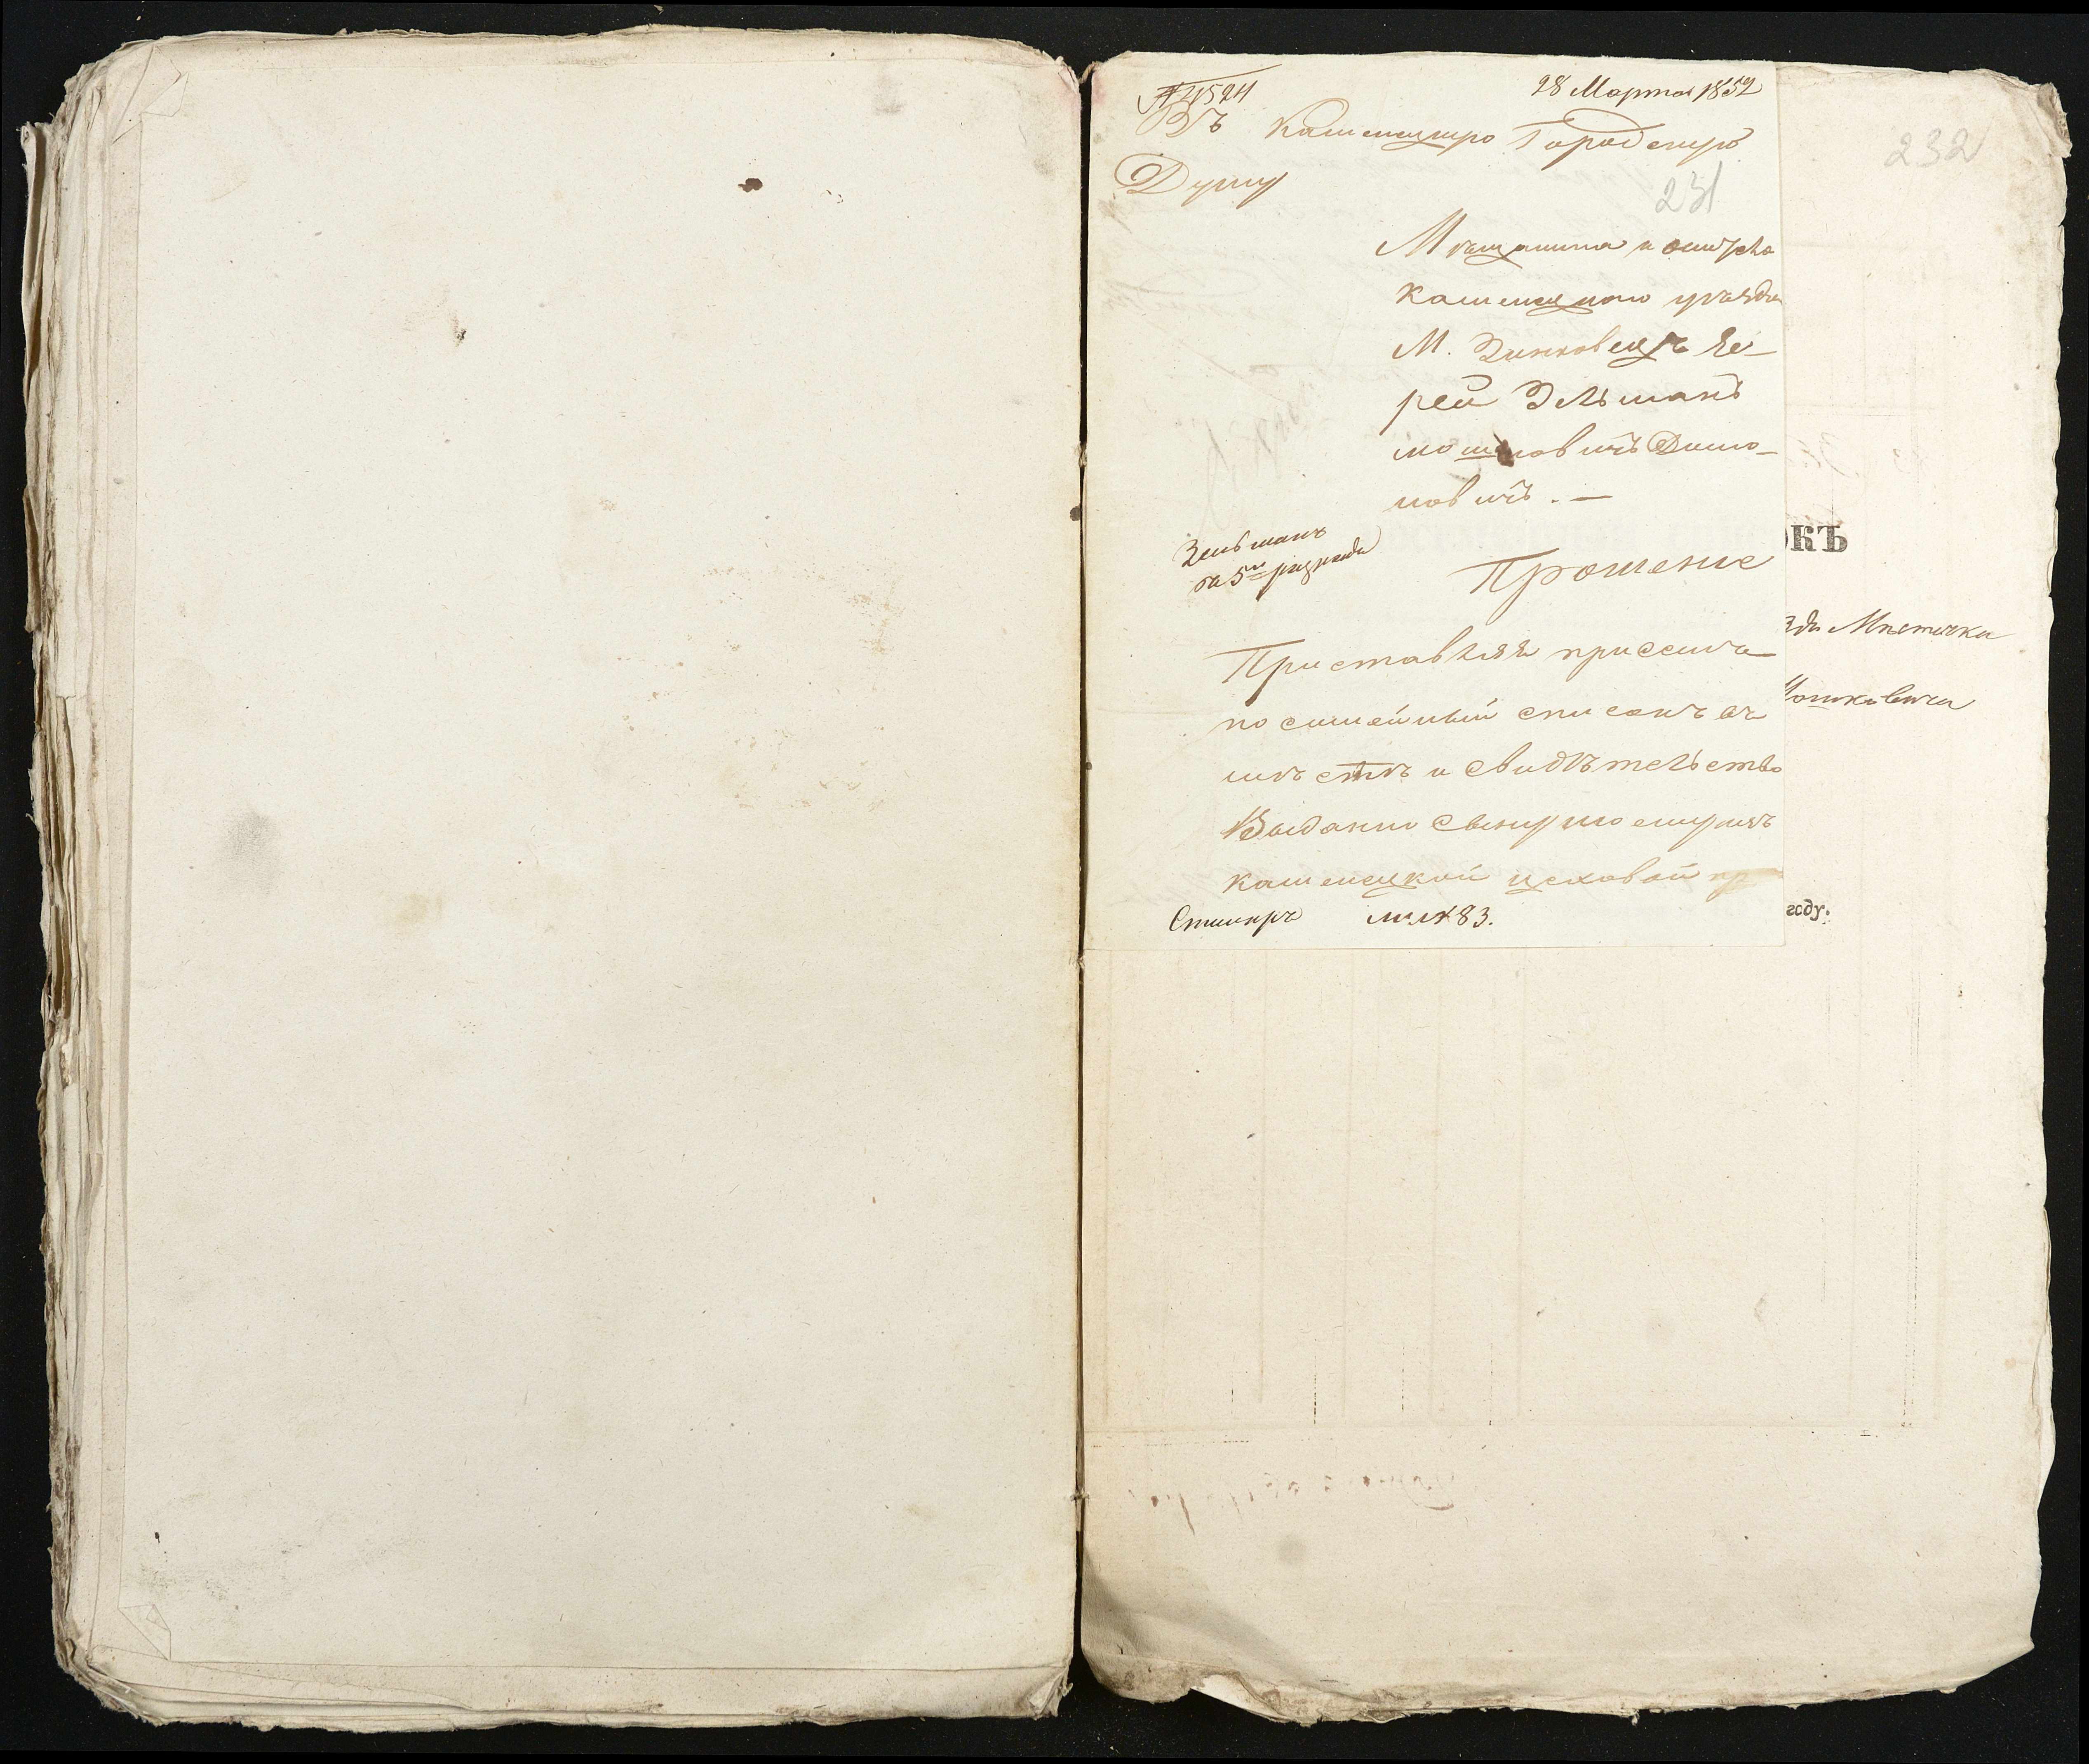 № 4524
28 Марта 1852
Въ Каменецкую Городскую
Думу
232
231
Мещанина и
Каменецкого уезда
М. Зинковецъ Ев-
рей Зельманъ
мошковичъ Дино-
вичъ. —
Зельманъ
на 5й разряда
Прошение
Приставляя присемъ
посимейный списокъ въ
месте и свидѣтельство
Выдано сыну моему изъ
каменецкой цеховой
№ 83.
окъ
зда Мѣстечка
Мошковича
году.